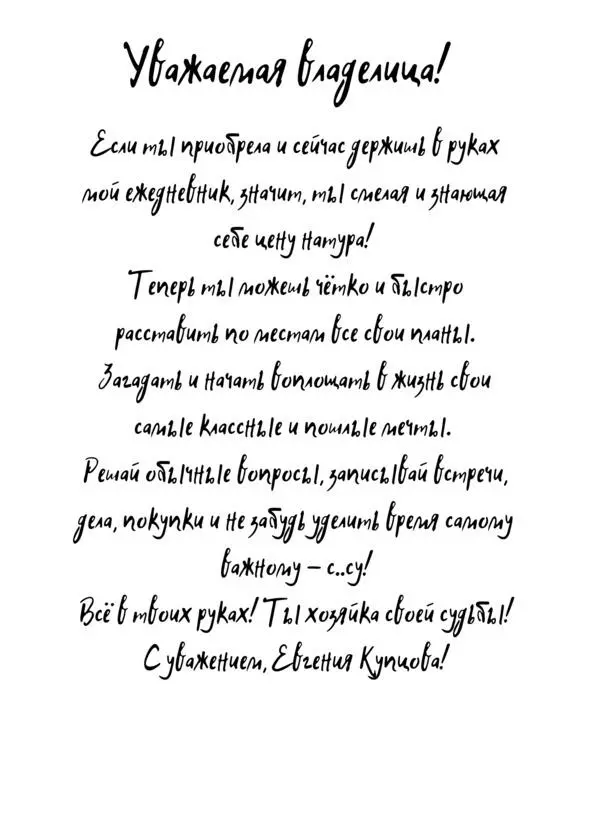 Уважаемая владелица!
Если ты приобрела и сейчас держишь в руках
мой ежедневник, значит, ты смелая и знающая
себе цену натура!
Теперь ты можешь чётко и быстро
расставить по местам все свои планы.
Загадать и начать воплощать в жизнь свои
самые классные и пошлые мечты.
Решай обычные вопросы, записывай встречи,
дела, покупки и не забудь уделить время самому
важному – с..су!
Всё в твоих руках! Ты хозяйка своей судьбы!
С уважением, Евгения Купцова!